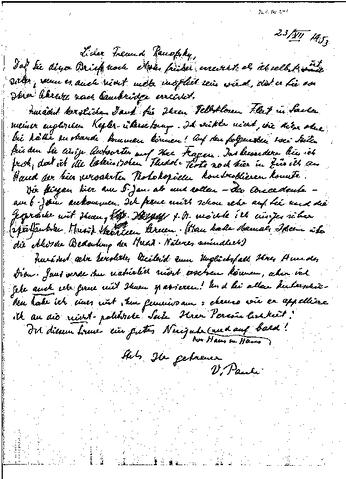 23/XII 1953
Lieber Freund Panofsky,
Daß Sie dieser Brief noch etwas früher erreicht als ich selbst, ist
sicher, wenn es auch nicht mehr möglich sein wird, daß er Sie vor
Ihrer Abreise nach Cambridge erreicht.
Zunächst herzlichen Dank für Ihren selbstlosen Fleiß in Sachen
meiner englischen Kepler-Übersetzung. Ich wüßte nicht, wie diese ohne
Sie hätte zustande kommen können! Auf den folgenden Seiten
finden Sie einige Antworten auf Ihre Fragen. Insbesondere bin ich
froh, daß ich alle lateinischen Fludd-Texte noch hier in Zürich an
Hand der hier verwahrten Photokopien kontrollieren konnte.
Wir fliegen hier am 5. Jan. ab und sollen
am 6. Jan ankommen. Ich freue mich schon sehr auf Sie und die
Gespräche mit Ihnen z.B. möchte ich einiges über
Musik lernen.
die Bedeutung der Musik. Näheres mündlich)
Zunächst sehr herzliches Beileid zum Unglücksfall Ihres Hundes
. Ganz werde ich natürlich nicht ersetzen können, aber ich
gehe auch sehr gerne mit Ihnen spazieren! Und bei allen Unterschie-
den habe ich eines mit ihm gemeinsam: ebenso wie er appelliere
ich an die nicht-politische Seite Ihrer Persönlichkeit!
In diesem Sinne – ein gutes Neujahr und auf bald!
von Haus zu Haus
Stets Ihr getreuer
W. Pauli